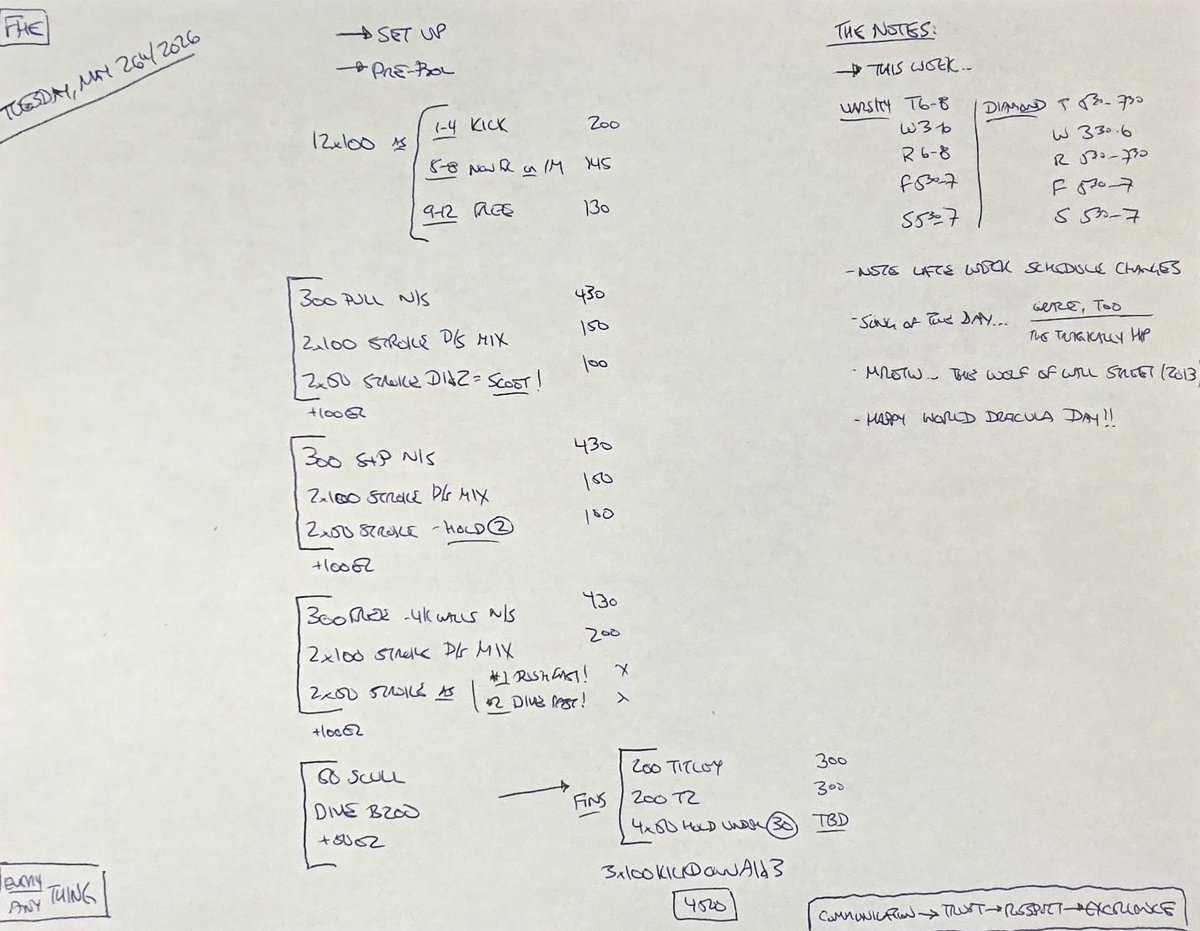 FHE
TUESDAY, MAY 26th/2026
→ SET UP
→ PRE-POOL
12x100 AS
1-4 KICK 200
5-8 NON FR OR IM 145
9-12 FREE 130
300 PULL N/S 430
2x100 STROKE D/S MIX 150
2x50 STROKE D1d2 = SCOOT! 100
+100EZ
300 S+P N/S 430
2x100 STROKE D/S MIX 150
2x50 STROKE - HOLD 2 100
+100EZ
300 FREE - 4K WALLS N/S 430
2x100 STROKE D/S MIX 200
2x50 STROKE AS
#1 PUSH FAST! X
#2 DIVE FAST! X
+100EZ
50 SCULL
DIVE B200
+50EZ
→ FINS
200 TITLEY 300
200 T2 300
4x50 HOLD UNDER 30 TBD
3x100 KICK DOWN A1d3
4500
EVERY
ANY THING
THE NOTES:
→ THIS WEEK...
VARSITY T 6-8
W 3-6
R 6-8
F 530-7
S 530-7
DIAMOND T 530-730
W 330-6
R 530-730
F 530-7
S 530-7
- NOTE LATE WEEK SCHEDULE CHANGES
- SONG OF THE DAY... GRACE, TOO
THE TRAGICALLY HIP
- MROTW... THE WOLF OF WALL STREET (2013)
- HAPPY WORLD DRACULA DAY!!
COMMUNICATION → TRUST → RESPECT → EXCELLENCE